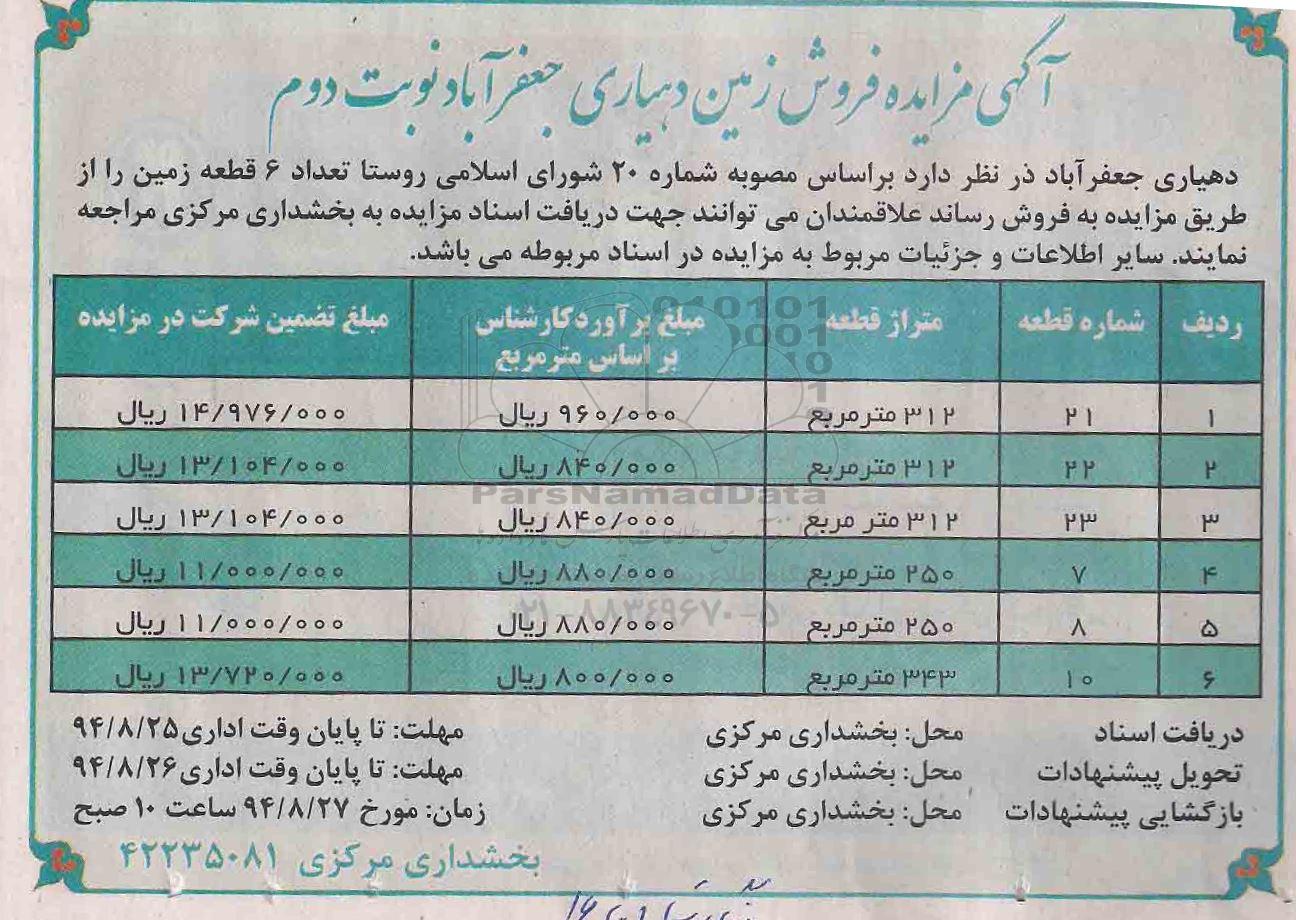 آگهی مزایده فروش زمین دهیاری جعفرآباد نوبت دوم
دهیاری جعفرآباد ذر نظر دارد براساس مصوبه شماره ۲۰ شورای اسلامی روستا تعداد ۶ قطعه زمین را از
طریق مزایده به فروش رساند علاقمندان می توانند جهت دریافت اسناد مزایده به بخشداری مرکزی مراجعه
نمایند. سایر اطلاعات و جزئیات مربوط به مزایده در اسناد مربوطه می باشد.
ردیف شماره قطعه متراژ قطعه مبلغ برآوردکارشناس بر اساس مترمربع مبلغ تضمین شرکت در مزایده
۱ ۲۱ ۳۱۲ مترمربع ۹۶۰/۰۰۰ ریال ۱۴/۹۷۶/۰۰۰ ریال
۲ ۲۲ ۳۱۲ مترمربع ۸۴۰/۰۰۰ ریال ۱۳/۱۰۴/۰۰۰ ریال
۳ ۲۳ ۳۱۲ متر مربع ۸۴۰/۰۰۰ ریال ۱۳/۱۰۴/۰۰۰ ریال
۴ ۷ ۲۵۰ مترمربع ۸۸۰/۰۰۰ ریال ۱۱/۰۰۰/۰۰۰ ریال
۵ ۸ ۲۵۰ مترمربع ۸۸۰/۰۰۰ ریال ۱۱/۰۰۰/۰۰۰ ریال
۶ ۱۰ ۳۴۳ مترمربع ۸۰۰/۰۰۰ ریال ۱۳/۷۲۰/۰۰۰ ریال
دریافت اسناد محل: بخشداری مرکزی مهلت: تا پایان وقت اداری ۹۴/۸/۲۵
تحویل پیشنهادات محل: بخشداری مرکزی مهلت: تا پایان وقت اداری ۹۴/۸/۲۶
بازگشایی پیشنهادات محل: بخشداری مرکزی زمان: مورخ ۹۴/۸/۲۷ ساعت ۱۰ صبح
بخشداری مرکزی ۴۲۲۳۵۰۸۱
ParsNamadData
۰۲۱-۸۸۳۴۹۶۷۰-۵